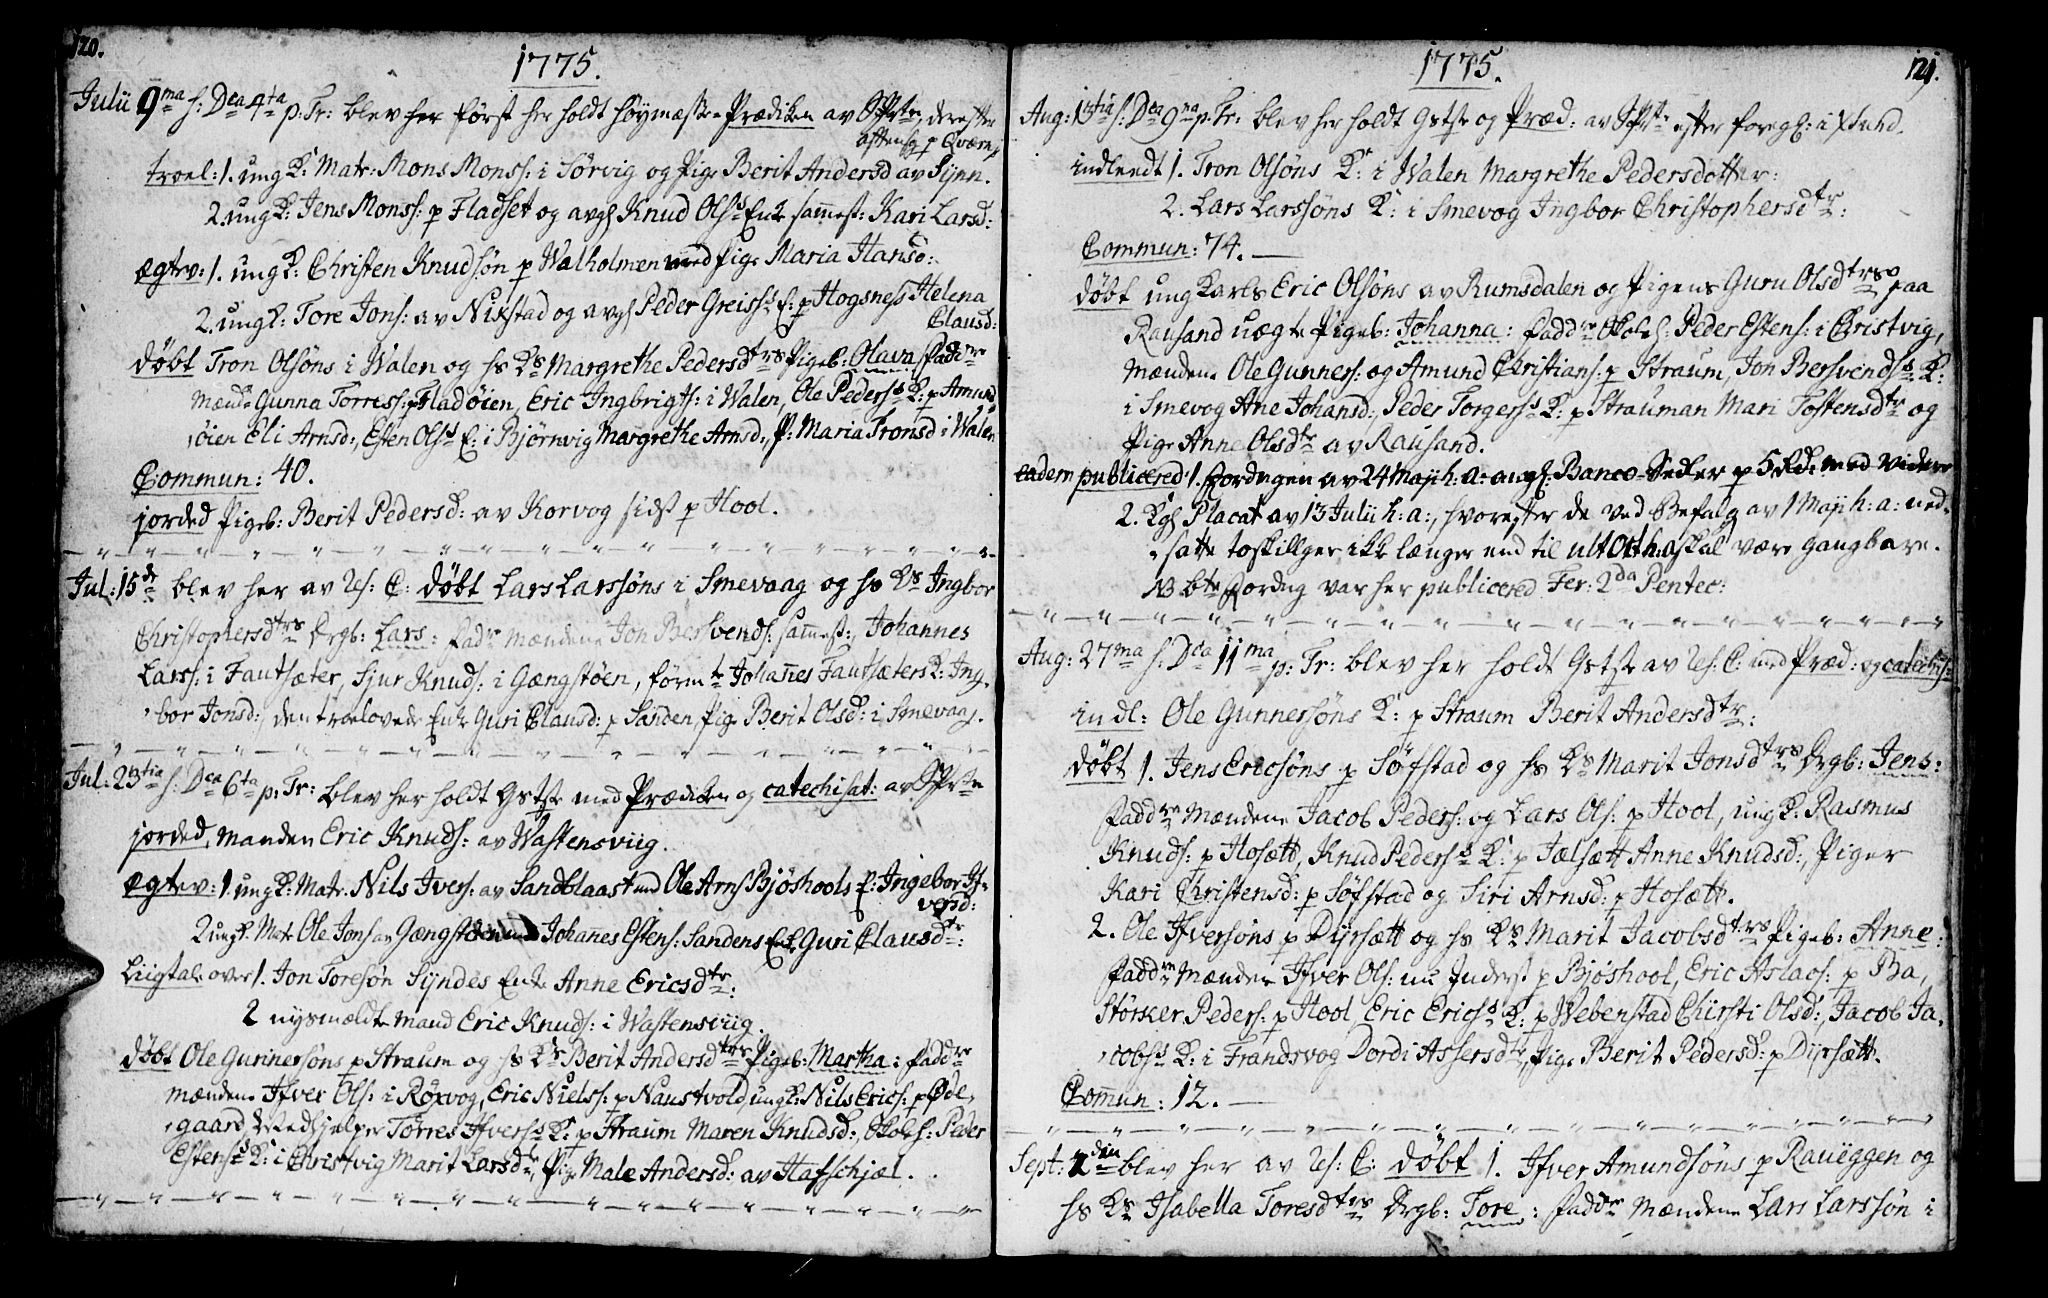 120.
1775.
Julii 9ma h: Dca 4ta p: Tr: blev her först her holdt Höymæsse Prædiken av SPrte, derefter
aftensg p Qværnes
troel: 1. ung K: Matr: Mons Monss: i Sørvig og Pige Berit Andersd av Synn.
2. ung K: Jens Monss: p Fladset og avgl Knud Olss Enke sammest: Kari Larsd:
ægtev: 1. ung K: Christen Knudsøn p Walholmen med Pige Maria Hansd:
2. ung K: Tore Jons: av Nixstad og avgl Peder Greiss: E: p Hogsness Helena
Clausd:
døbt Tron Olsøns i Walen og hs Ks Margrethe Pedersdtrs Pigeb: Olava fadd re
mænd: Gunna Torress: p Fladøien, Eric Ingbrigts: i Walen, Ole Pederss K: p Amund-
øien Eli Arnsd:, Esten Olss E: i Bjørnvig Margrethe Arnsd:, P: Maria Tronsd i Walen
Commun: 40.
jorded Pigeb: Berit Pedersd: av Korvog sidst p Hool.
Jul: 15de blev her av Res: C: døbt Lars Larssøns i Smevaag og hs Ks Ingbor
Christophersdtrs Drgb: Lars: fadr mændene Jon Bersvends: sammest:, Johannes
Larss: i Fautsæter, Sjur Knuds: i Gængstøen, førmte Johannes Fautsæters K: Ing-
bor Jonsd:, den troelovede Enke Guri Clausd: p Sanden, Pige Berit Olsd: i Smevaag.
Jul: 23tia h: Dca 6ta p: Tr: blev her holdt Gstste med Prædiken og catechisat: av SPrte
jorded, manden Eric Knuds: av Wastensviig.
ægtev: 1. ung K: Matr. Nils Ivers: av Sandblaast med Ole Arns Bjøshools E: Ingebor If-
versd:
2 ung K. Matr Ole Jons av Gængstøen med Johannes Estens: Sandens Enke Guri Clausdtr:
Liigtale over 1. Jon Toresøn Syndes Enke Anne Ericsdtr:
2 nysmældte mand Eric Knuds: i Wastensviig.
døbt Ole Gunnersøns p Straum og hs Ks Berit Andersdtrs Pigeb: Martha: faddre
mændene Ifver Ols: i Roxvog, Eric Niels: p Naustvold, ung K: Nils Erics: p Øde-
gaard, Medhjelper Torres Ifverss K: p Straum Maren Knudsd:, Skoleh: Peder
Estenss K: i Christvig Marit Larsdtr, Pige Male Andersd: av Hafschjæl.
1775.
121.
Aug: 13tia h: Dca 9na p: Tr: blev her holdt Gstste og Præd: av SPrte efter foregl: i Xsund.
indleedt 1. Tron Olsøns K: i Walen Margrethe Pedersdotter:
2. Lars Larssøns K: i Smevog Ingbor Christophersdtr:
Commun: 74.
døbt ung Karls Eric Olsøns av Rumsdalen og Pigens Guru Olsdtrs paa
Rausand uægte Pigeb: Johanna: faddre Skoleh: Peder Estens: i Christvig,
mændene Ole Gunners: og Amund Christians: p Straum, Jon Bersvendss K:
i Smevog Ane Johansd:, Peder Torgerss K: p Strauman Mari Tostensdtr og
Pige Anne Olsdtr av Rausand.
eadem publicered: 1. Fordngen av 24 Maji h: a: angl: Banco-Sedler p 5 Rd: med videre
2. Kgl Placat av 13 Julii h: a:, hvorefter de ved Befalg av 1 Maji h: a: ned-
satte toskillger ikke længer end til ult Octb h: a skal være gangbare.
NB bte Fordng var her publicered Fer: 2da Pentec:
Aug: 27ma h: Dca 11ma p: Tr: blev her holdt Gstste av Res: C: med Præd: og catechis:
indl: Ole Gunnersøns K: p Straum Berit Andersdtr:
døbt 1. Jens Ericsøns p Søfstad og hs Ks Marit Jonsdtrs Drgb: Jens:
faddre mændene Jacob Peders: og Lars Ols: p Hool, ung K: Rasmus
Knuds: p Hosætt, Knud Pederss K: p Jælsætt Anne Knudsd:, Piger
Kari Christensd: p Søfstad og Siri Arnsd: p Hosætt.
2. Ole Ifversøns p Dyrsætt og hs Ks Marit Jacobsdtrs Pigeb: Anne:
faddre mændene Ifver Ols: nu Inderst p Bjøshool, Eric Aslaos: p Ba,
Størker Peders: p Hool, Eric Ericss K: p Webenstad Chirsti Olsd:, Jacob Ja-
cobss K: i Frandsvog Dordi Assersdtr, Pige Berit Pedersd: p Dyrsætt.
Commun: 12.
Sept: 2den blev her av Res: C: døbt 1. Ifver Amundsøns p Raueggen og
hs Ks Isabella Toresdtrs Drgb: Tore: faddre mændene Lars Larssøn i